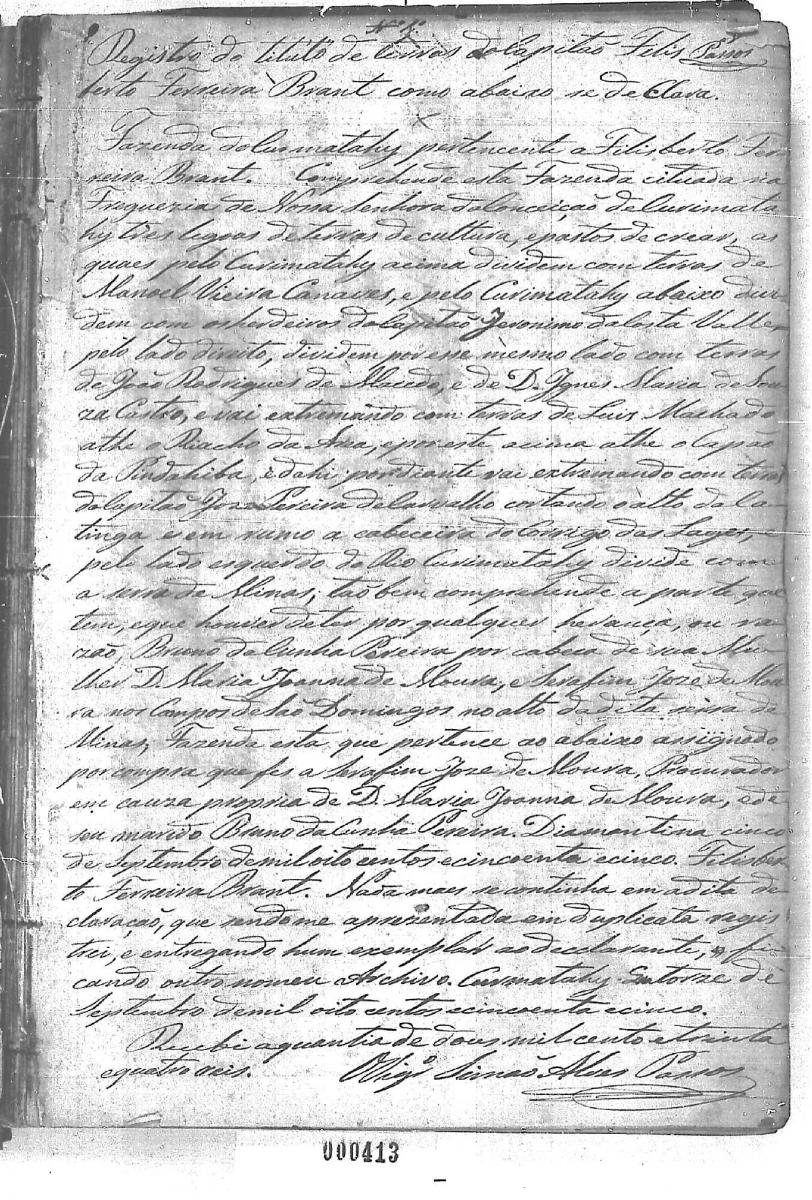 Nº 1º
Registro do titulo de terras do Capitaõ Filis Passos
berto Ferreira Brant como abaixo se declara.
Fazenda do Curmatahy pertencente a Filisberto Fer
reira Brant. Comprehende esta Fazenda cituada na
Freguezia de Nossa Senhora da Conceiçaõ do Curimata
hy tres legoas de terras de cultura, e pastos de crear, as
quaes pelo Curimatahy acima dividem com terras de
Manoel Vieira Canaves, e pelo Curimatahy abaixo divi
dem com os herdeiros do Capitaõ Jeronimo da Costa Valle,
pelo lado direito, dividem por esse mesmo lado com terras
de Joaõ Rodrigues de Macedo, e de D. Ignes Maria de Sou
za Castro, e vai extremando com terras de Luis Machado
athe o Riacho da Area, e por este acima athe o Capaõ
da Pindahiba, e dahi por diante vai extreimando com terras
do Capitaõ Joze Pereira de Carvalho cortando o alto da Ca
tinga e em rumo a cabeceira do Corrigo das Lages,
pelo lado esquerdo do Rio Curimatahy divide com
a serra de Minas, taõ bem comprehende a parte que
tem, e que houver de ter por qualquer herança, ou ra
zaõ, Bruno da Cunha Pereira por cabeça de sua Mu
lher D. Maria Joanna de Moura, e Serafim Joze de Mou
ra nos Campos de saõ Domingos no alto da dita serra de
Minas, Fazenda esta, que pertence ao abaixo assignado
por compra que fes a Serafim Joze de Moura, Procurador
em cauza propria de D. Maria Joanna de Moura, e de
seu marido Bruno da Cunha Pereira. Diamantina cinco
de Septembro de mil oito centos e cincoenta e cinco. Filisber
to Ferreira Brant. Nada maes se continha em a dita de
claraçaõ, que sendo me aprezentada em duplicata regis
trei, e entregando hum exemplar ao declarante, fi
cando outro no meu Archivo. Curmatahy Catorze de
Septembro de mil oito centos e cincoenta e cinco.
Recebi a quantia de dous mil cento e trinta
e quatro reis. Vigrº Simaõ Alves Passos
000413